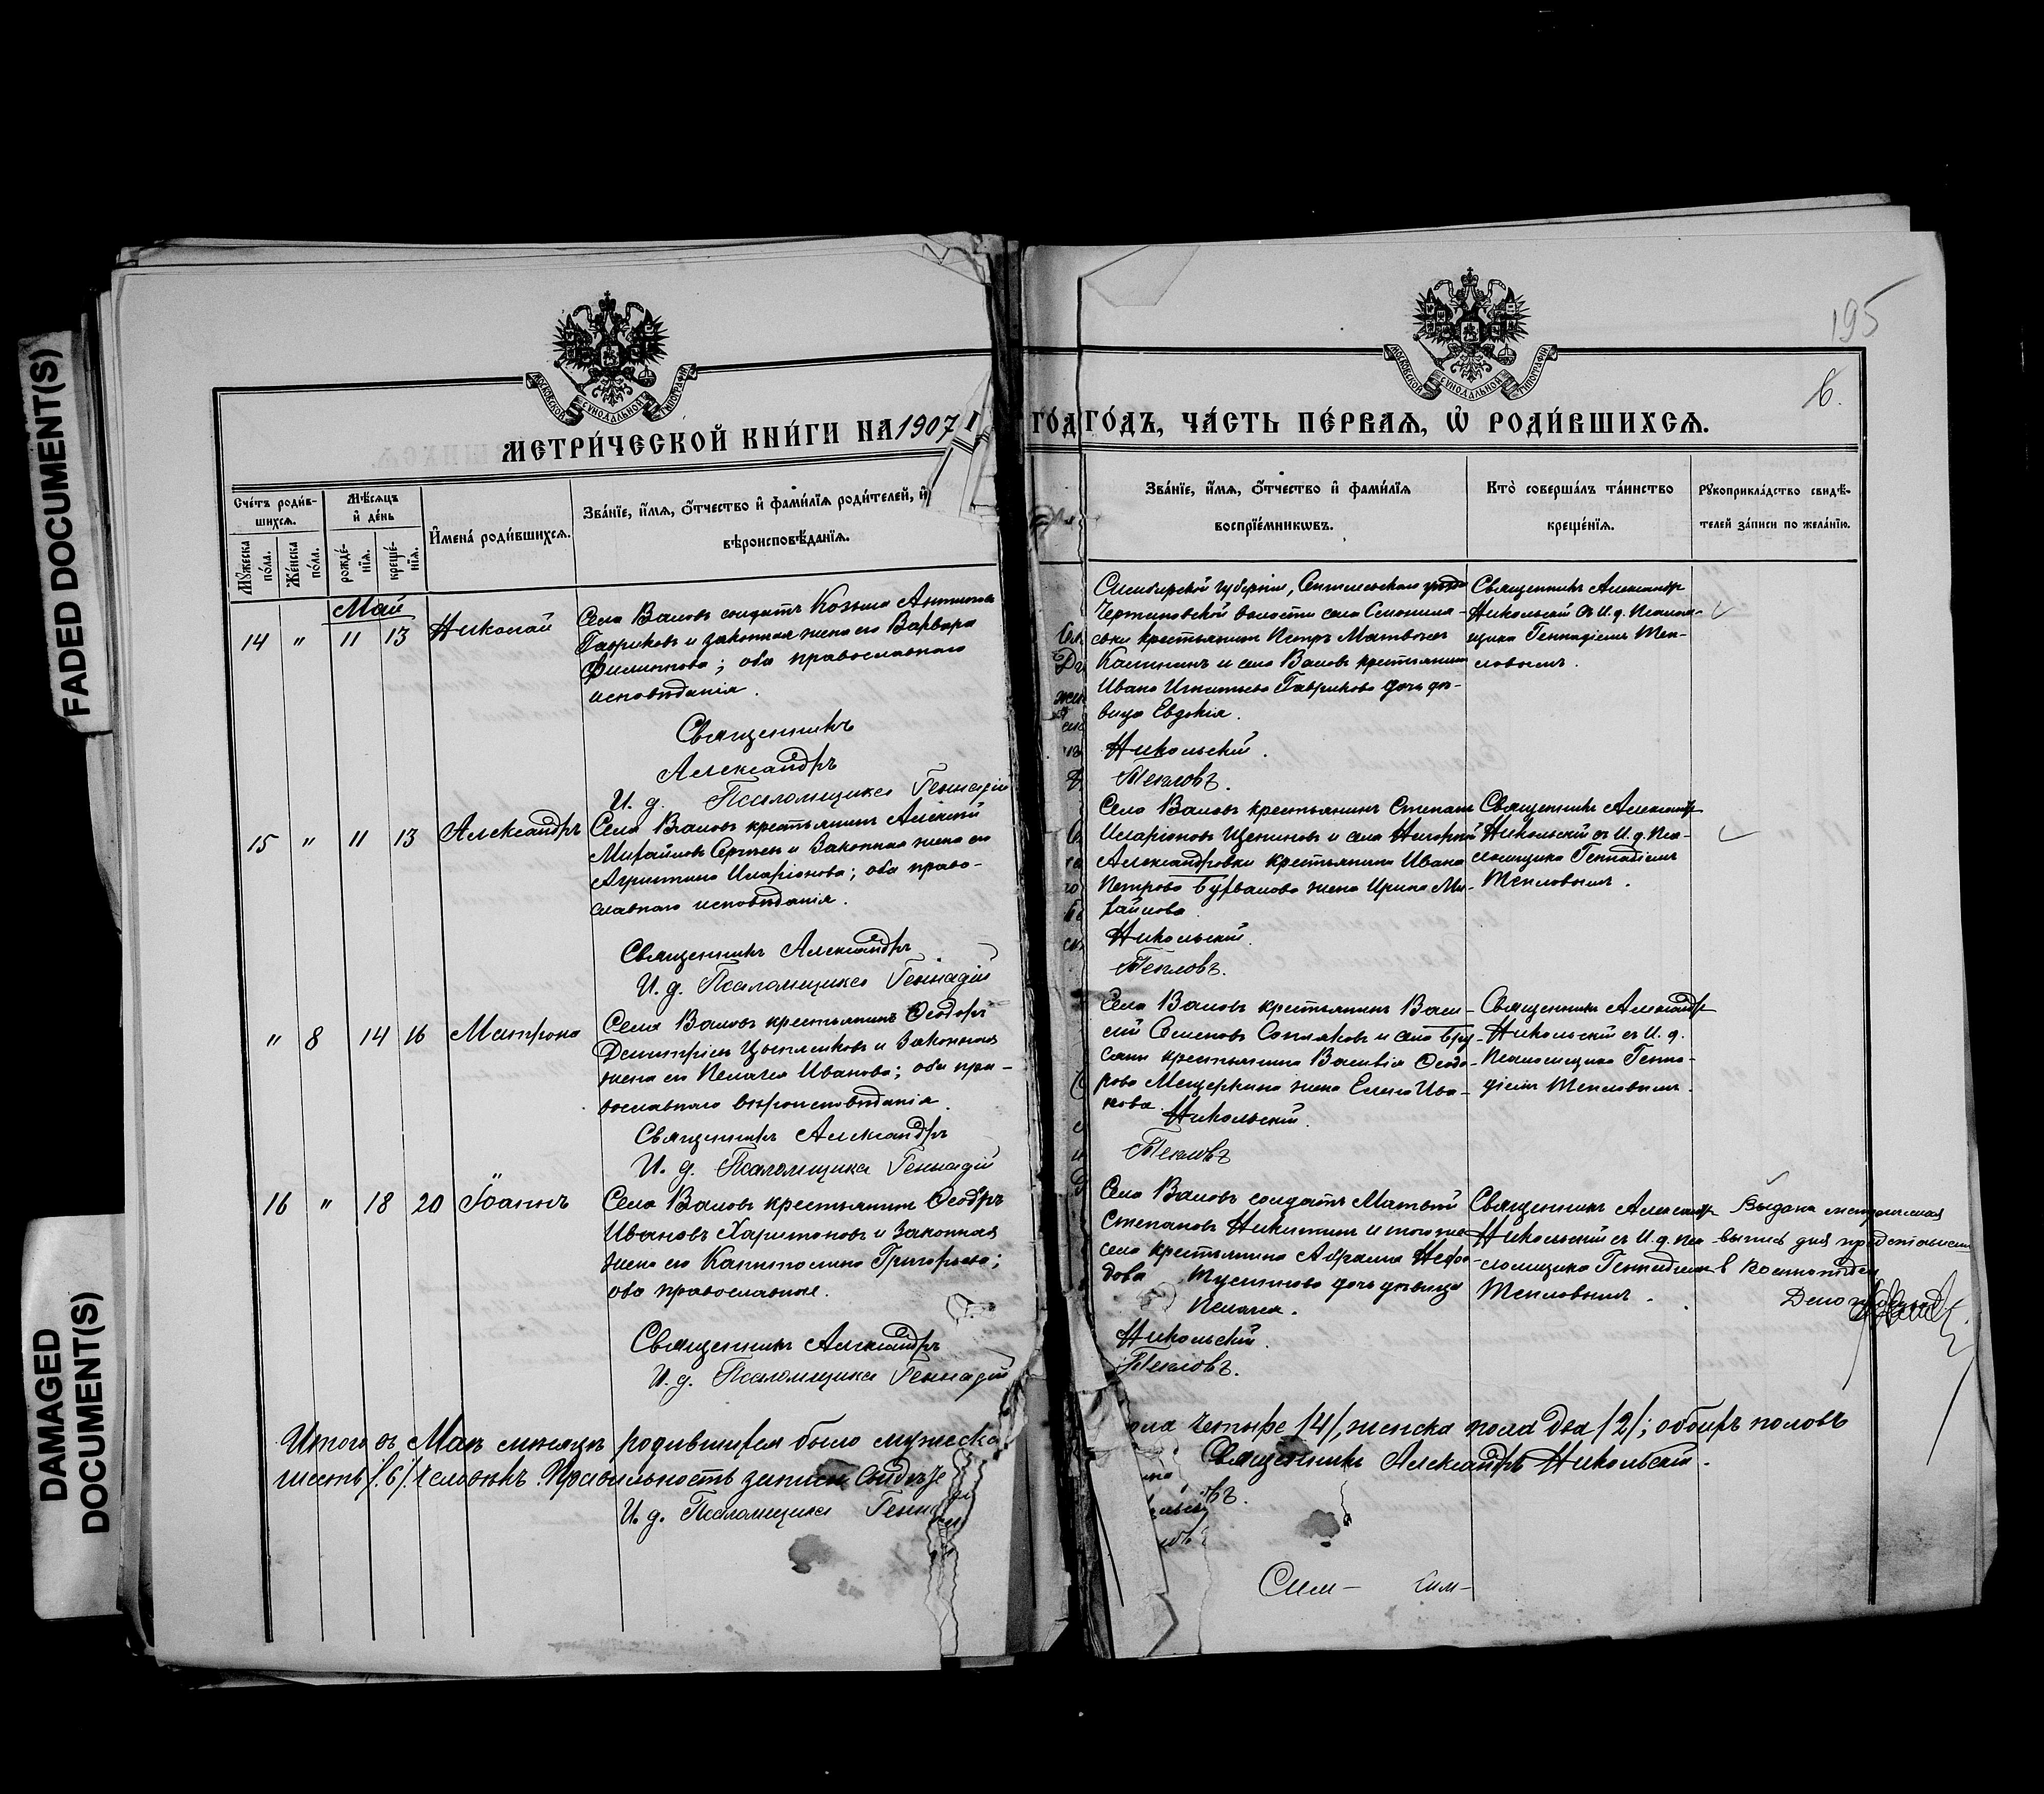 FADED DOCUMENT(S)
DAMAGED
DOCUMENT(S)
195
6.
МОСКОВСКОЙ СѴНОДАЛЬНОЙ ТИПОГРАФІИ
МОСКОВСКОЙ СѴНОДАЛЬНОЙ ТИПОГРАФІИ
МЕТРИ́ЧЕСКОЙ КНИ́ГИ НА 1907
ГО́ДЪ, ЧА́СТЬ ПЕ́РВАѦ, Ѡ҆ РОДИ́ВШИХСѦ.
Сче́тъ роди́в-
шихсѧ.
Мꙋ́жеска по́ла.
Же́нска по́ла.
Мѣ́сѧцъ
и҆ де́нь
рожде́-
нїѧ.
креще́-
нїѧ.
И҆мена̀ роди́вшихсѧ.
Зва́нїе, и҆́мѧ, ѻ҆́тчество и҆ фами́лїѧ роди́телей, и҆
вѣроисповѣ́данїѧ.
Зва́нїе, и҆́мѧ, ѻ҆́тчество и҆ фами́лїѧ
воспрїе́мникѡвъ.
Кто̀ соверша́лъ та́инство
креще́нїѧ.
Рꙋкоприкла́дство свидѣ́-
телей за́писи по жела́нїю.
Май
14 " 11 13 Николай
Села Валовъ солдатъ Козьма Антиповъ
Гавриковъ и законная жена его Варвара
Филиппова; оба православнаго
исповѣданія.
Священникъ
Александръ
И. д. Псаломщика Геннадій
Симбирской губерніи, Сенгилеевскаго уѣзда
волости села
крестьянинъ Петръ Матвѣевъ
Калининъ и села Валовъ крестьянина
Ивана Игнатьева Гаврикова дочь дѣ-
вица Евдокія.
Никольскій.
Тепловъ.
Священникъ Александръ
Никольскій съ И. д. Псалом-
щика Геннадіемъ Теп-
ловымъ.
15 " 11 13 Александръ
Села Валовъ крестьянинъ Алексій
Михайловъ и законная жена его
Агриппина Иларіонова; оба право-
славнаго исповѣданія.
Священникъ Александръ
И. д. Псаломщика Геннадій
Села Валовъ крестьянинъ Степанъ
Иларіоновъ Щепиновъ и села Нагорной
Александровки крестьянина Ивана
Петрова жена Ирина Ми-
хайлова.
Никольскій.
Тепловъ.
Священникъ Александръ
Никольскій съ И. д. Пса-
ломщика Геннадіемъ
Тепловымъ.
" 8 14 16 Матрона
Села Валовъ крестьянинъ Ѳеодоръ
Димитріевъ Цыпленковъ и законная
жена его Пелагея Иванова; оба пра-
вославнаго вѣроисповѣданія.
Священникъ Александръ
И. д. Псаломщика Геннадій
Села Валовъ крестьянинъ Васи-
лій Семеновъ и села Бру-
сянъ крестьянина Василія Ѳеодо-
рова Мещерякина жена Елена Ива-
нова.
Никольскій.
Тепловъ
Священникъ Александръ
Никольскій съ И. д.
Псаломщика Генна-
діемъ Тепловымъ.
16 " 18 20 Іоаннъ
Села Валовъ крестьянинъ Ѳеодоръ
Ивановъ Харитоновъ и законная
жена его Капитолина Григорьева;
оба православные.
Священникъ Александръ
И. д. Псаломщика Геннадій
Села Валовъ солдатъ Матвѣй
Степановъ Никитинъ и того же
села крестьянина Абрама Нефо-
дова дочь дѣвица
Пелагея.
Никольскій.
Тепловъ.
Священникъ Александръ
Никольскій съ И. д. Пса-
ломщика Геннадіемъ
Тепловымъ.
Выдана метрическая
выпись для представленія
в
Итого въ Маѣ мѣсяцѣ родившихся было мужеска
пола четыре /4/, женска пола два /2/; обоихъ половъ
шесть /6/ человѣкъ. Правильность записи
Священникъ Александръ Никольскій.
И. д. Псаломщика
Сим- Сим-